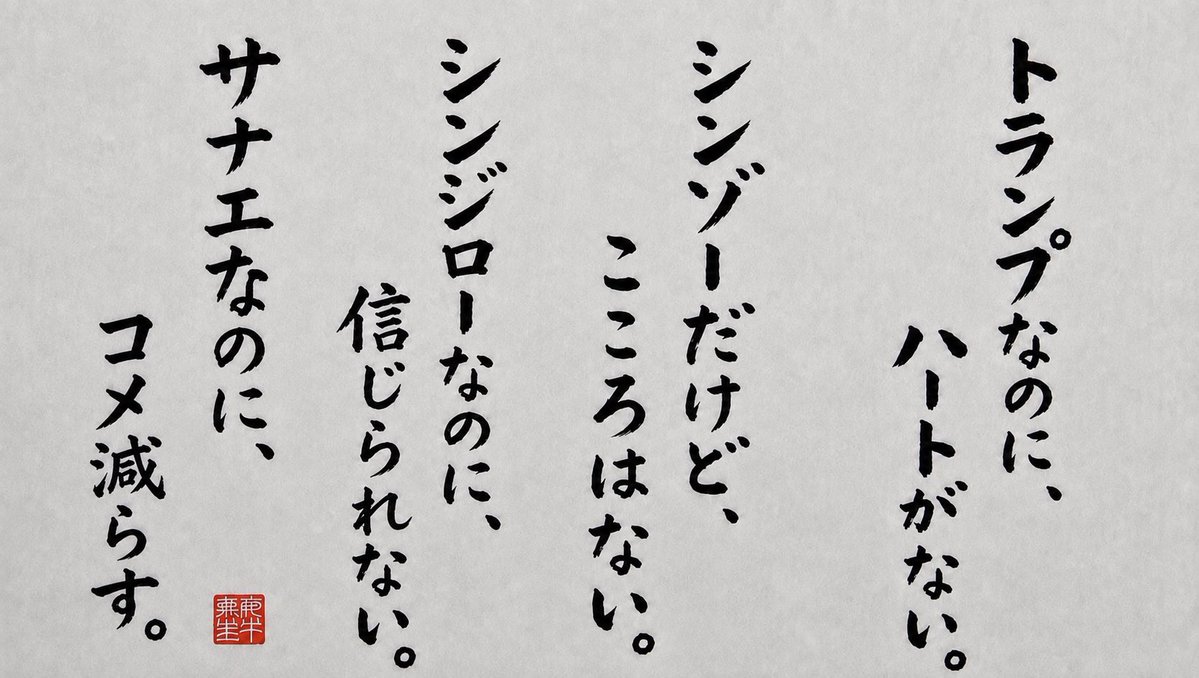 トランプなのに、
ハートがない。
シンゾーだけど、
こころはない。
シンジローなのに、
信じられない。
サナエなのに、
コメ減らす。